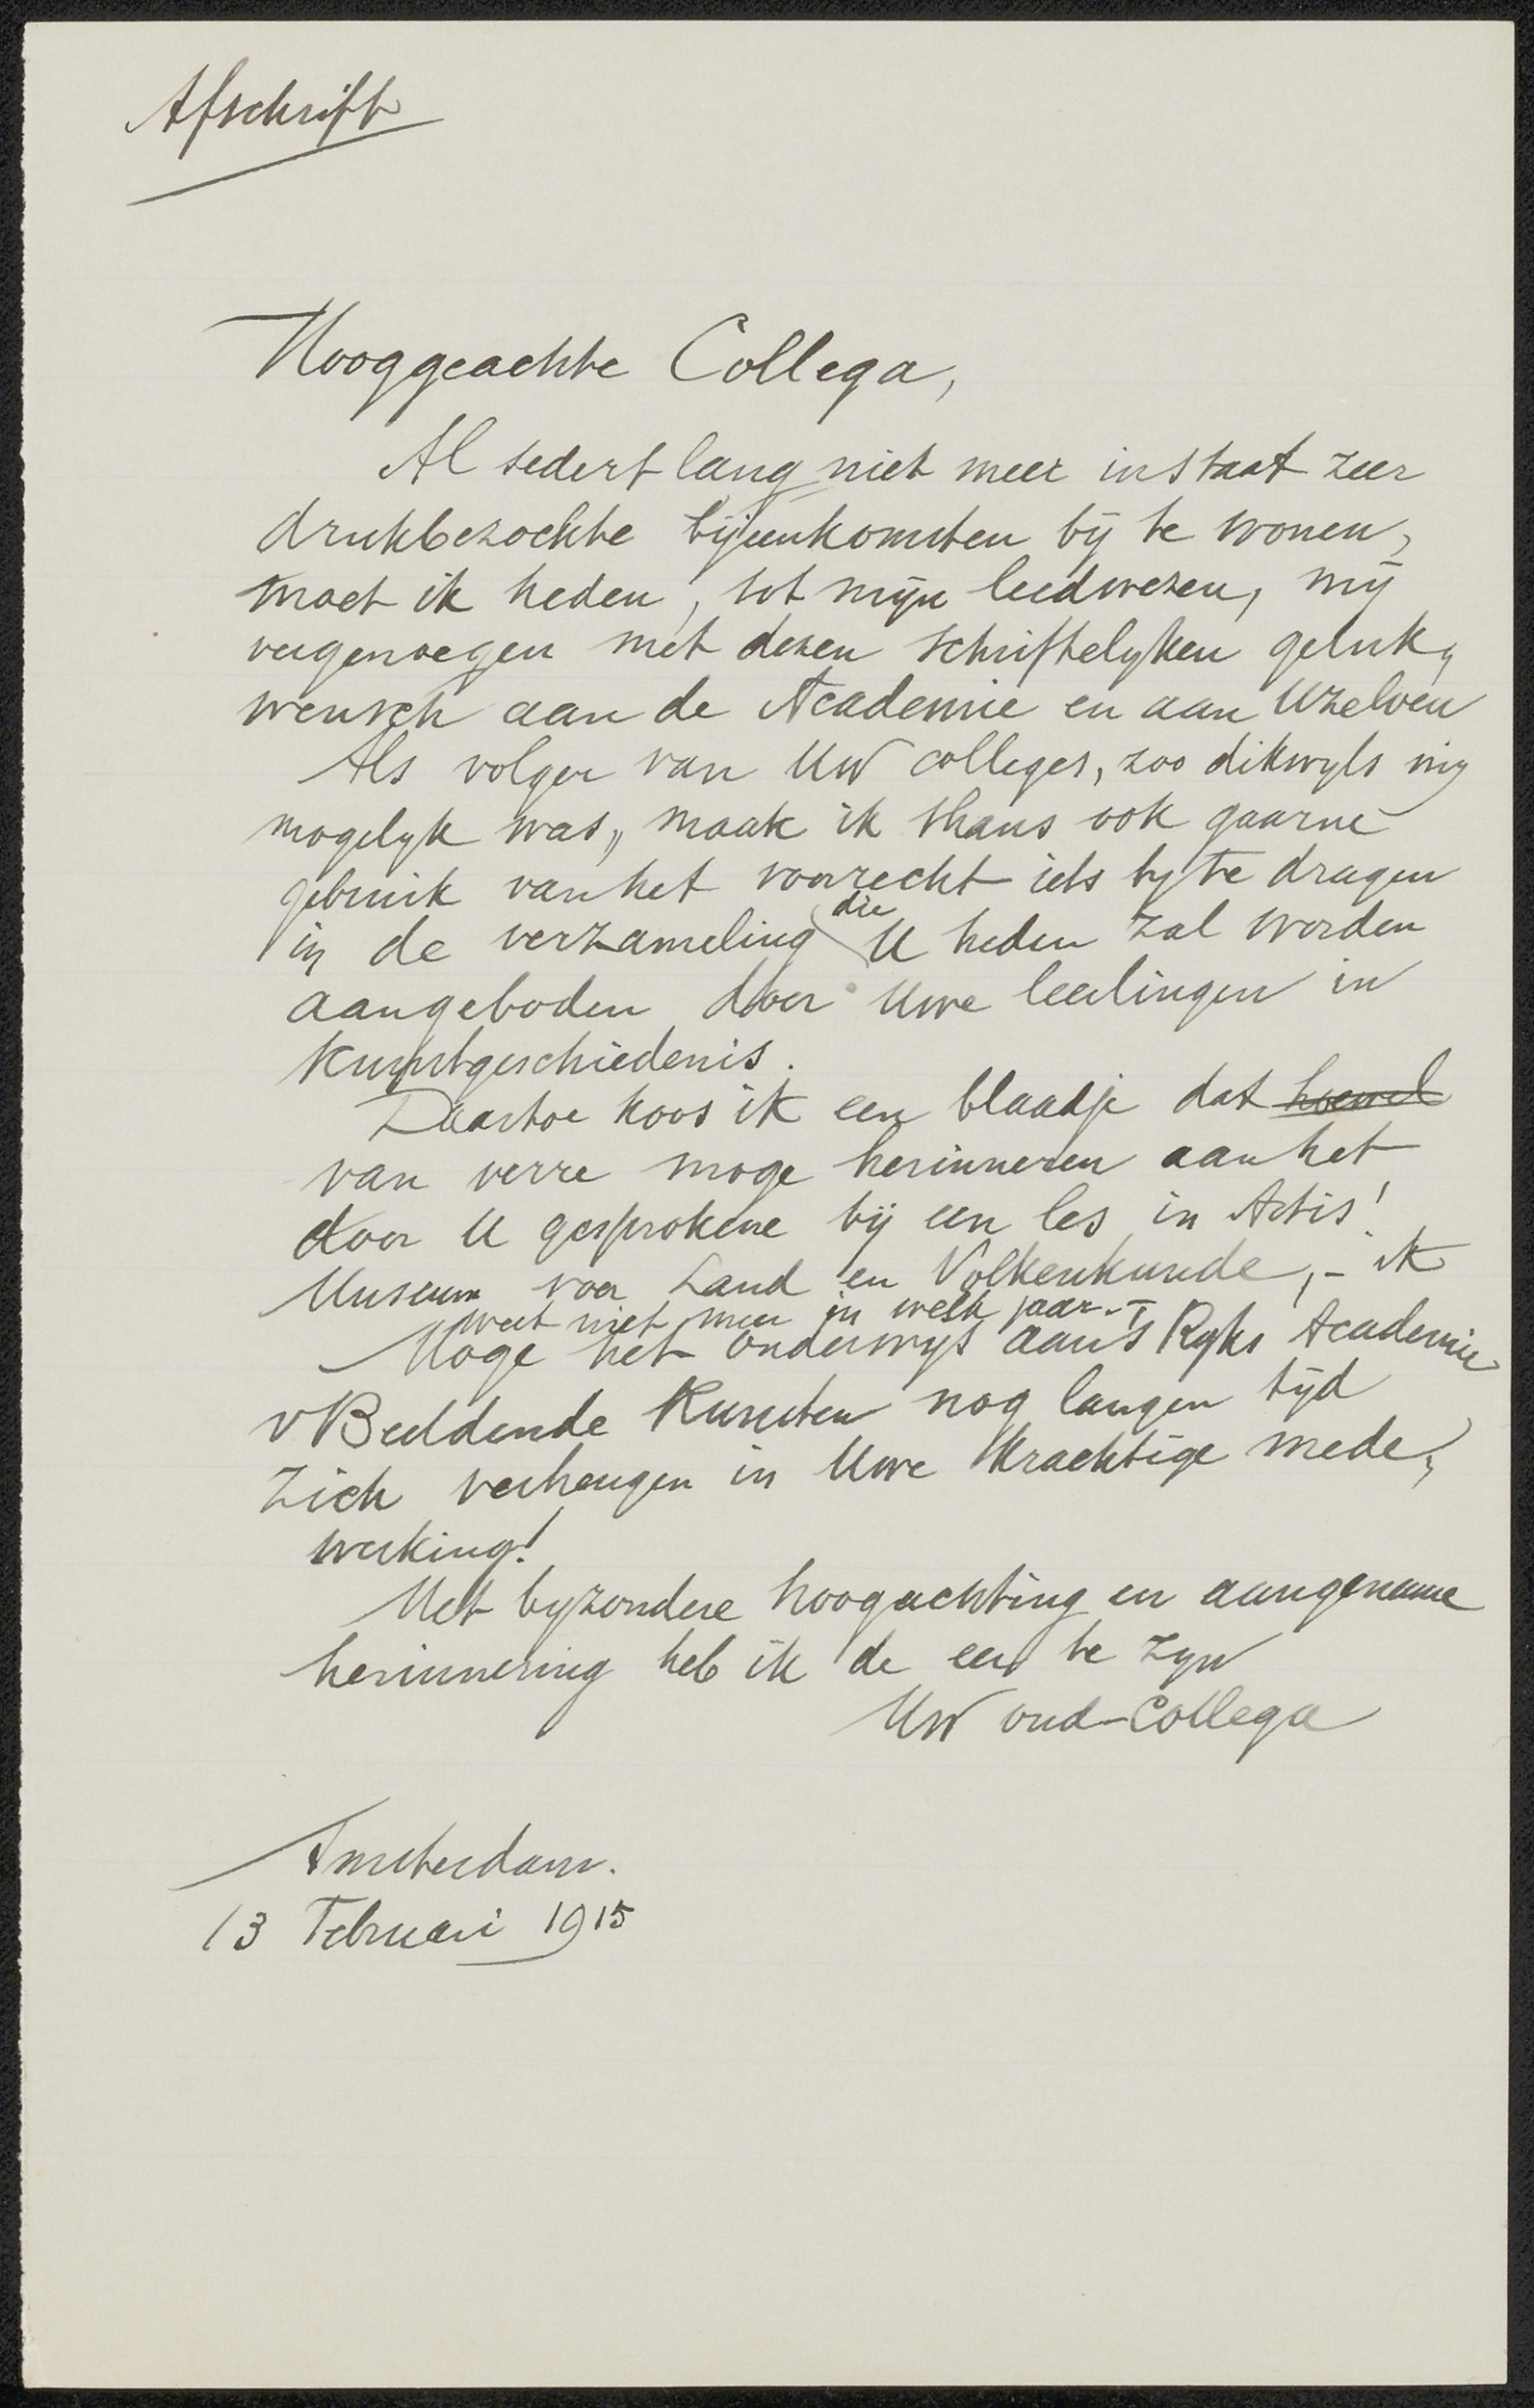 Afschrift
Hooggeachte Collega,
Al sedert lang niet meer in staat zeer
drukbezochte bijeenkomsten bij te wonen,
moet ik heden, tot mijn leedwezen, mij
vergenoegen met dezen schriftelyken geluk„
wensch aan de Academie en aan Uzelven
Als volger van Uw colleges, zoo dikwyls my
mogelyk was, maak ik thans ook gaarne
gebruik van het voorrecht iets by te dragen
in de verzameling die U heden zal worden
aangeboden door Uwe leerlingen in
Kunstgeschiedenis.
Daartoe koos ik een blaadje dat hoewel
van verre moge herinneren aan het
door U gesprokene bij een les in Artis'
Museum voor Land en Volkenkunde, - ik
weet niet meer in welk jaar. -
Moge het onderwys aan 's Ryks Academie
v Beeldende Kunsten nog langen tijd
zich verheugen in Uwe krachtige mede„
werking!
Met byzondere hoogachting en aangename
herinnering heb ik de eer te zyn
Uw oud-Collega
Amsterdam.
13 Februari 1915